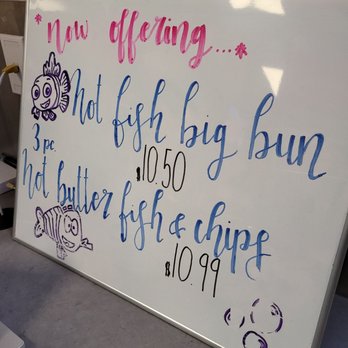 *Now offering...*
Hot fish big bun
$10.50
3 pc.
Hot butter fish & chips
$10.99